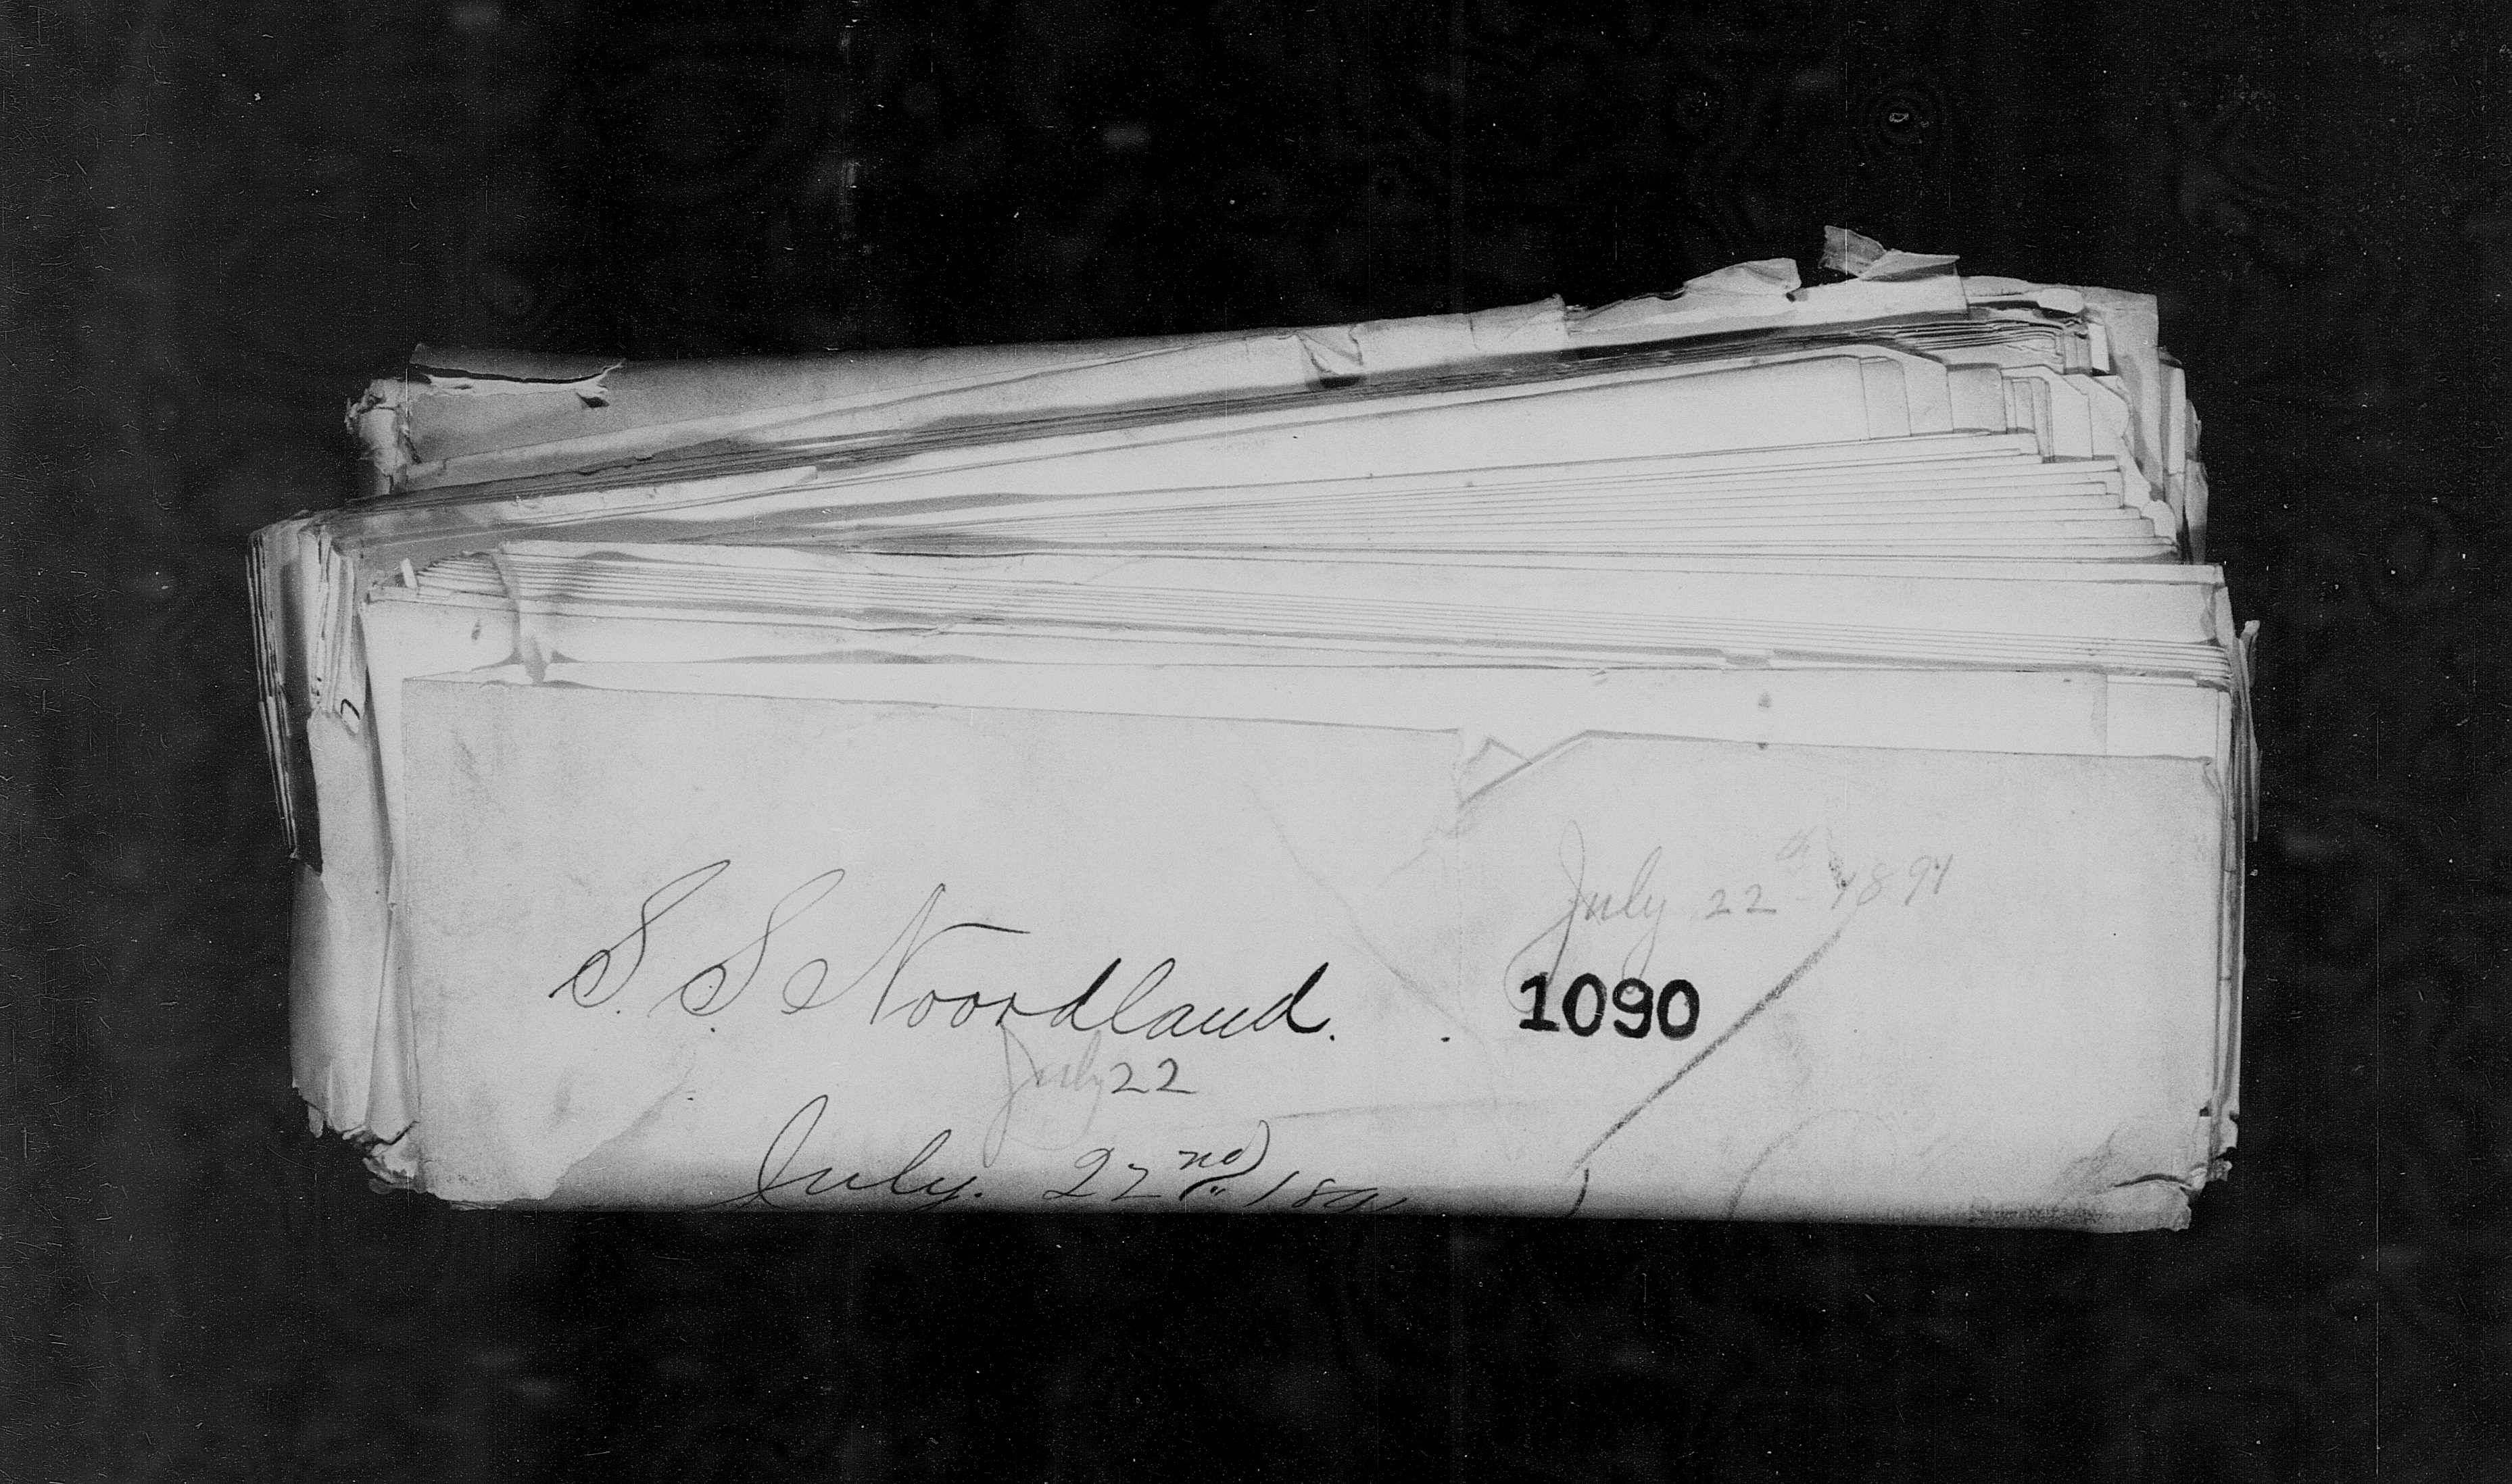 July 22th 1891
S. S. Noordland. 1090
July 22
July. 22nd 189